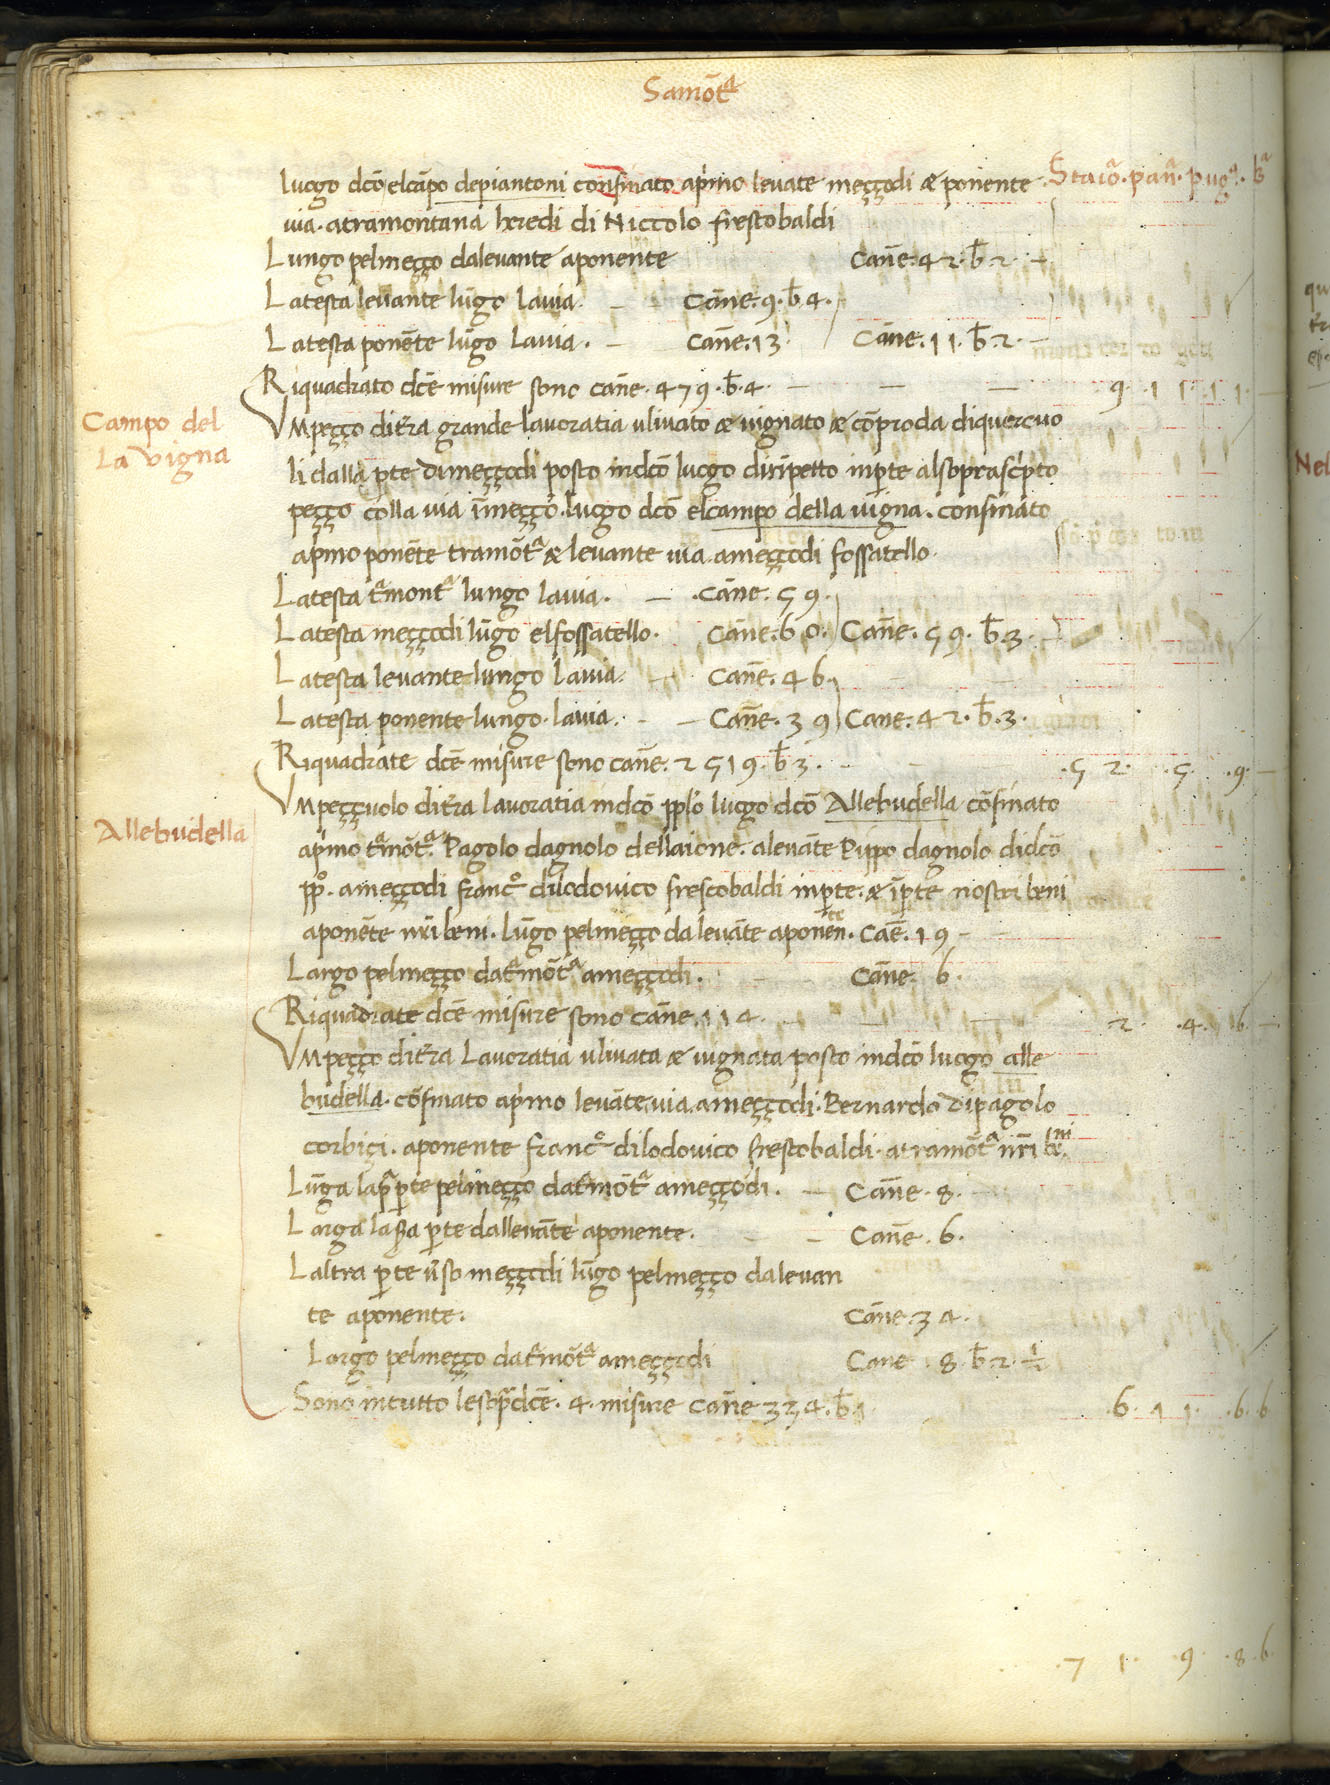 Samōtª
luogo dcō elcāpo depiantoni confinato ap̄mo levate meççodi & ponente · Staioª · panª · pugª · bª
via · atramontana heredi di Niccolo frescobaldi
Lungo pelmeçço dalevante aponente Cañe · 42 · b̄ · 2 · –
Latesta levante lūgo lavia · – Cañe · 9 · b̄ 4 ·
Latesta ponēte lūgo lavia · – Cañe · 13 · Cañe · 11 · b̄ · 2 · –
Riquadrato dcē misure sono cañe · 479 · b̄ · 4 · – – – 9 · 11 · 11 · –
Campo del
la vigna
Vmpeçço dit̄ra grande lavoratia ulivato & vignato & cōproda diquercuo
li dalla p̄te dimeççodi posto indcō luogo dirīpetto inp̄te alsoprascīpto
peçço colla via īmeçço · luogo dcō elcampo della vigna · confinato
ap̄mo ponēte tramōtª & levante via · ameççodi fossatello ·
Latesta tªmontª lungo lavia · – · Cañe · 59 ·
Latesta meççodi lūgo elfossatello · Cañe · 60 · Cañe · 59 · b̄ · 3 · –
Latesta levante lungo lavia · – Cañe · 46 ·
Latesta ponente lungo lavia · – Cañe · 39 Cane · 42 · b̄ · 3 ·
Riquadrate dcē misure sono cañe · 2519 · b̄ 3 · – · 52 · · 5 · · 9 · –
Allebudella
Vmpeççuolo dit̄ra lavoratia indcō pplō luogo dcō Allebudella cōfinato
ap̄mo tªmōtª · Pagolo dagnolo dellaione · alevāte Pippo dagnolo didcō
ppº · ameççodi francº dilodovico frescobaldi inp̄te · & īp̄te nostri beni
aponēte nr̄i beni · lūgo pelmeçço da levāte aponen̄te · Cañe · 19 –
Largo pelmeçço datªmōtª ameççodi · – Cañe · 6 ·
Riquadrate dcē misure sono cañe · 114 · – – – 2 · · 4 · 6 · –
Vmpeçço dit̄ra Lavoratia ulivata & vignata posto indcō luogo alle
budella · cōfinato ap̄mo levāte via · ameççodi · Bernardo dipagolo
corbiçi · aponente francº dilodovico frescobaldi · atramōtª nr̄i beni
Lūga lap̄ª p̄te pelmeçço datªmōtª ameççodi · – Cañe · 8 · –
Larga p̄te dallevāte aponente · – – Cañe · 6 ·
Laltra p̄te v̄so meççodi lūgo pelmeçço dalevan
te aponente · Cañe · 34 ·
Largo pelmeçço datªmōtª ameççodi Cane · 8 · b̄ 2 · ½
Sono intutto lesop̄dcē · 4 · misure cañe 334 · b̄ 1 · 6 · 11 · · 6 · 6
· 71 · · 9 · 8 · 6